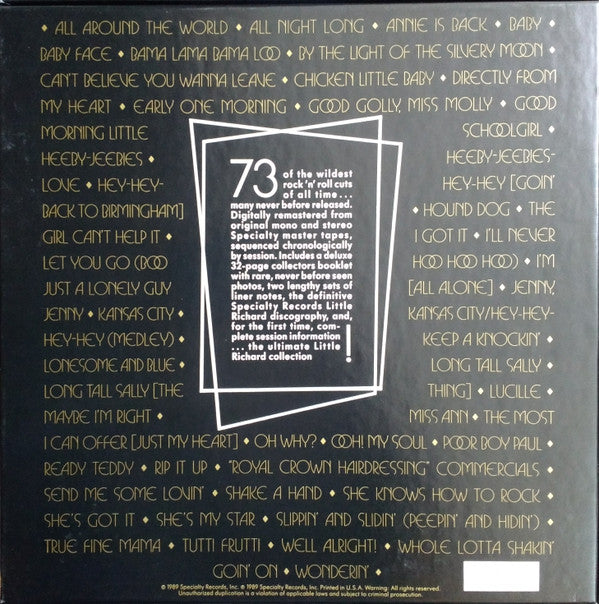 ♦ ALL AROUND THE WORLD ♦ ALL NIGHT LONG ♦ ANNIE IS BACK ♦ BABY ♦
BABY FACE ♦ BAMA LAMA BAMA LOO ♦ BY THE LIGHT OF THE SILVERY MOON ♦
CAN'T BELIEVE YOU WANNA LEAVE ♦ CHICKEN LITTLE BABY ♦ DIRECTLY FROM
MY HEART ♦ EARLY ONE MORNING ♦ GOOD GOLLY, MISS MOLLY ♦ GOOD
MORNING LITTLE SCHOOLGIRL ♦
HEEBY-JEEBIES ♦ HEEBY-JEEBIES-
LOVE ♦ HEY-HEY- HEY-HEY [GOIN'
BACK TO BIRMINGHAM] ♦ HOUND DOG ♦ THE
GIRL CAN'T HELP IT ♦ I GOT IT ♦ I'LL NEVER
LET YOU GO (BOO HOO HOO HOO) ♦ I'M
JUST A LONELY GUY [ALL ALONE] ♦ JENNY,
JENNY ♦ KANSAS CITY ♦ KANSAS CITY/HEY-HEY-
HEY-HEY (MEDLEY) ♦ KEEP A KNOCKIN' ♦
LONESOME AND BLUE ♦ LONG TALL SALLY ♦
LONG TALL SALLY [THE THING] ♦ LUCILLE ♦
MAYBE I'M RIGHT ♦ MISS ANN ♦ THE MOST
I CAN OFFER [JUST MY HEART] ♦ OH WHY? ♦ OOH! MY SOUL ♦ POOR BOY PAUL ♦
READY TEDDY ♦ RIP IT UP ♦ "ROYAL CROWN HAIRDRESSING" COMMERCIALS ♦
SEND ME SOME LOVIN' ♦ SHAKE A HAND ♦ SHE KNOWS HOW TO ROCK ♦
SHE'S GOT IT ♦ SHE'S MY STAR ♦ SLIPPIN' AND SLIDIN' (PEEPIN' AND HIDIN') ♦
TRUE FINE MAMA ♦ TUTTI FRUTTI ♦ WELL ALRIGHT! ♦ WHOLE LOTTA SHAKIN'
GOIN' ON ♦ WONDERIN' ♦
73 of the wildest
rock 'n' roll cuts
of all time...
many never before released.
Digitally remastered from
original mono and stereo
Specialty master tapes,
sequenced chronologically
by session. Includes a deluxe
32-page collectors booklet
with rare, never before seen
photos, two lengthy sets of
liner notes, the definitive
Specialty Records Little
Richard discography, and,
for the first time, com-
plete session information
...the ultimate Little
Richard collection!
© 1989 Specialty Records, Inc. ℗ 1989 Specialty Records, Inc. Printed in U.S.A. Warning: All rights reserved.
Unauthorized duplication is a violation of applicable laws and subject to criminal prosecution.